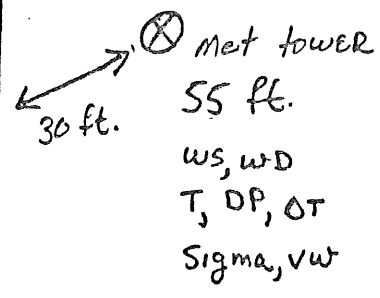 Met tower
55 ft.
30 ft.
WS, WD
T, DP, ΔT
Sigma, VW